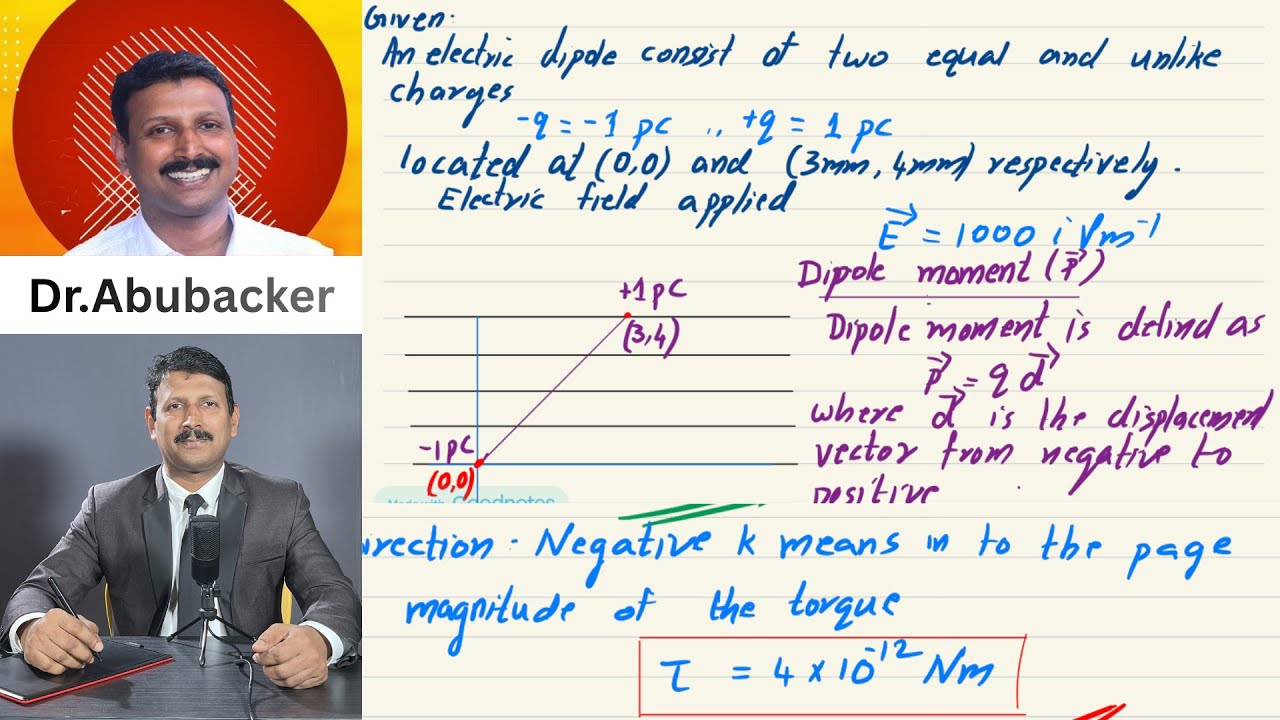 Given:
An electric dipole consist of two equal and unlike
charges
-q = -1 pC ,, +q = 1 pC
located at (0,0) and (3mm, 4mm) respectively.
Electric field applied
E⃗ = 1000 i Vm⁻¹
Dipole moment (P⃗)
Dipole moment is defind as
P⃗ = q d⃗
where d⃗ is the displacement
vector from negative to
positive
+1 pC
(3,4)
-1 pC
(0,0)
Made with Goodnotes
Dr.Abubacker
irection: Negative k means in to the page
magnitude of the torque
τ = 4 × 10⁻¹² Nm